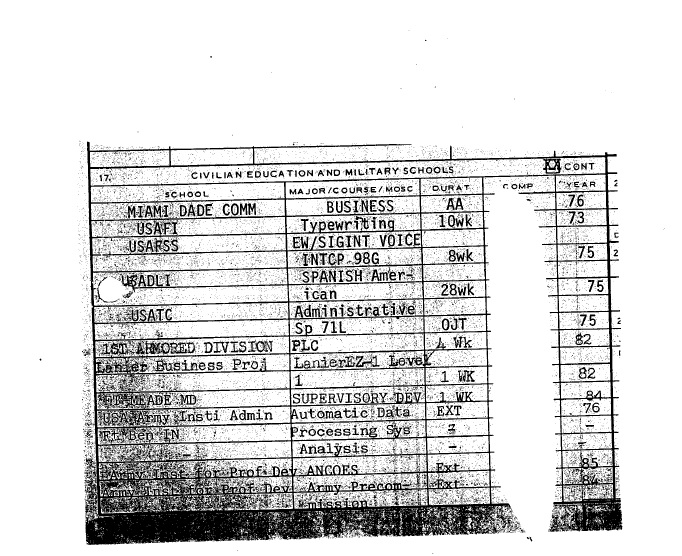 17. CIVILIAN EDUCATION AND MILITARY SCHOOLS XX CONT
SCHOOL MAJOR/COURSE/MOSC DURAT COMP YEAR 2
MIAMI DADE COMM BUSINESS AA 76
USAFI Typewriting 10wk 73
USAFSS EW/SIGINT VOICE
INTCP 98G 8wk 75
USADLI SPANISH Amer-
ican 28wk 75
USATC Administrative
Sp 71L OJT 75
1ST ARMORED DIVISION PLC 4 Wk 82
Lanier Business Proj LanierEZ-1 Level
1 1 WK 82
FT MEADE MD SUPERVISORY DEV 1 WK 84
USA Army Insti Admin Automatic Data EXT 76
Ft Ben IN Processing Sys - -
- Analysis - -
Army Inst for Prof Dev ANCOES Ext 85
Army Inst for Prof Dev Army Precom- Ext 84
mission